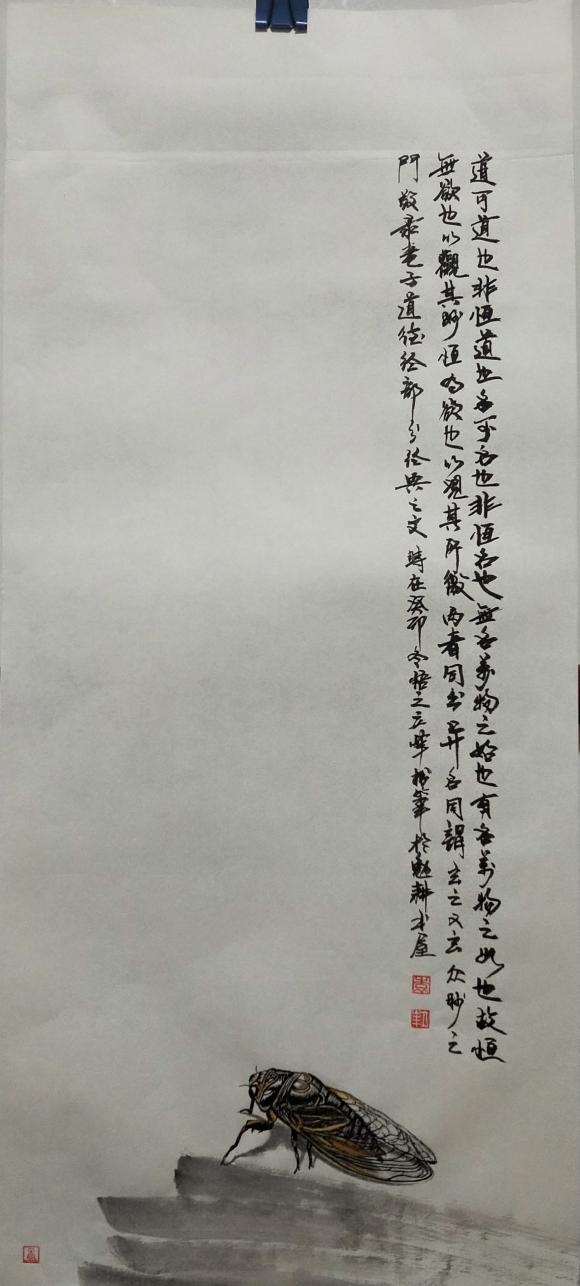 道可道也非恒道也名可名也非恒名也無名萬物之始也有名萬物之母也故恒
無欲也以觀其眇恒有欲也以觀其所徼兩者同出異名同謂玄之又玄众眇之
門敬录老子道德经部分经典之文時在癸卯冬悟之云峰执笔於勉耕书屋